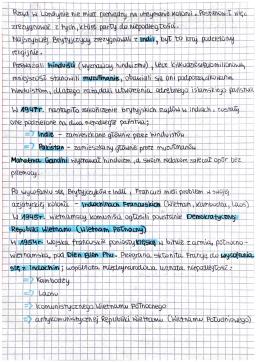 Rząd w Londynie nie miał pieniędzy na utrzymanie kolonii. Postanowił więc
zrezygnować z tych, które parły do niepodległości.
Najszybciej Brytyjczycy zrezygnowali z Indii, był to kraj podzielony
religijnie.
Przeważali hinduiści (wyznający hinduizm), lecz kilkudziesięciomilionową
mniejszość stanowili muzułmanie, obawiali się oni podporządkowania
hinduistom, dlatego zażądali utworzenia odrębnego islamskiego państwa
W 1947r. nastąpiło zakończenie brytyjskich rządów w Indiach, zostały
one podzielone na dwa niezależne państwa:
⇒ Indie - zamieszkane głównie przez hinduistów
⇒ Pakistan - zamieszkany głównie przez muzułmanów
Mahatma Gandhi wyznawał hinduizm, a swoim rodakom zalecał opór bez
przemocy.
Po wycofaniu się Brytyjczyków z Indii, Francuzi mieli problem w swojej
azjatyckiej kolonii - Indochinach Francuskich (Wietnam, Kambodża, Laos)
W 1945r. wietnamscy komuniści ogłosili powstanie Demokratycznej
Republiki Wietnamu (Wietnam Północny)
W 1954r. wojska francuskie poniosły klęskę w bitwie z armią północno-
wietnamską, pod Dien Bien Phu. Przegrana skłoniła Francję do wycofania
się z Indochin; wspólnota międzynarodowa uznała niepodległość:
⇒ Kambodży
⇒ Laosu
⇒ komunistycznego Wietnamu Północnego
⇒ antykomunistycznej Republiki Wietnamu (Wietnamu Południowego)